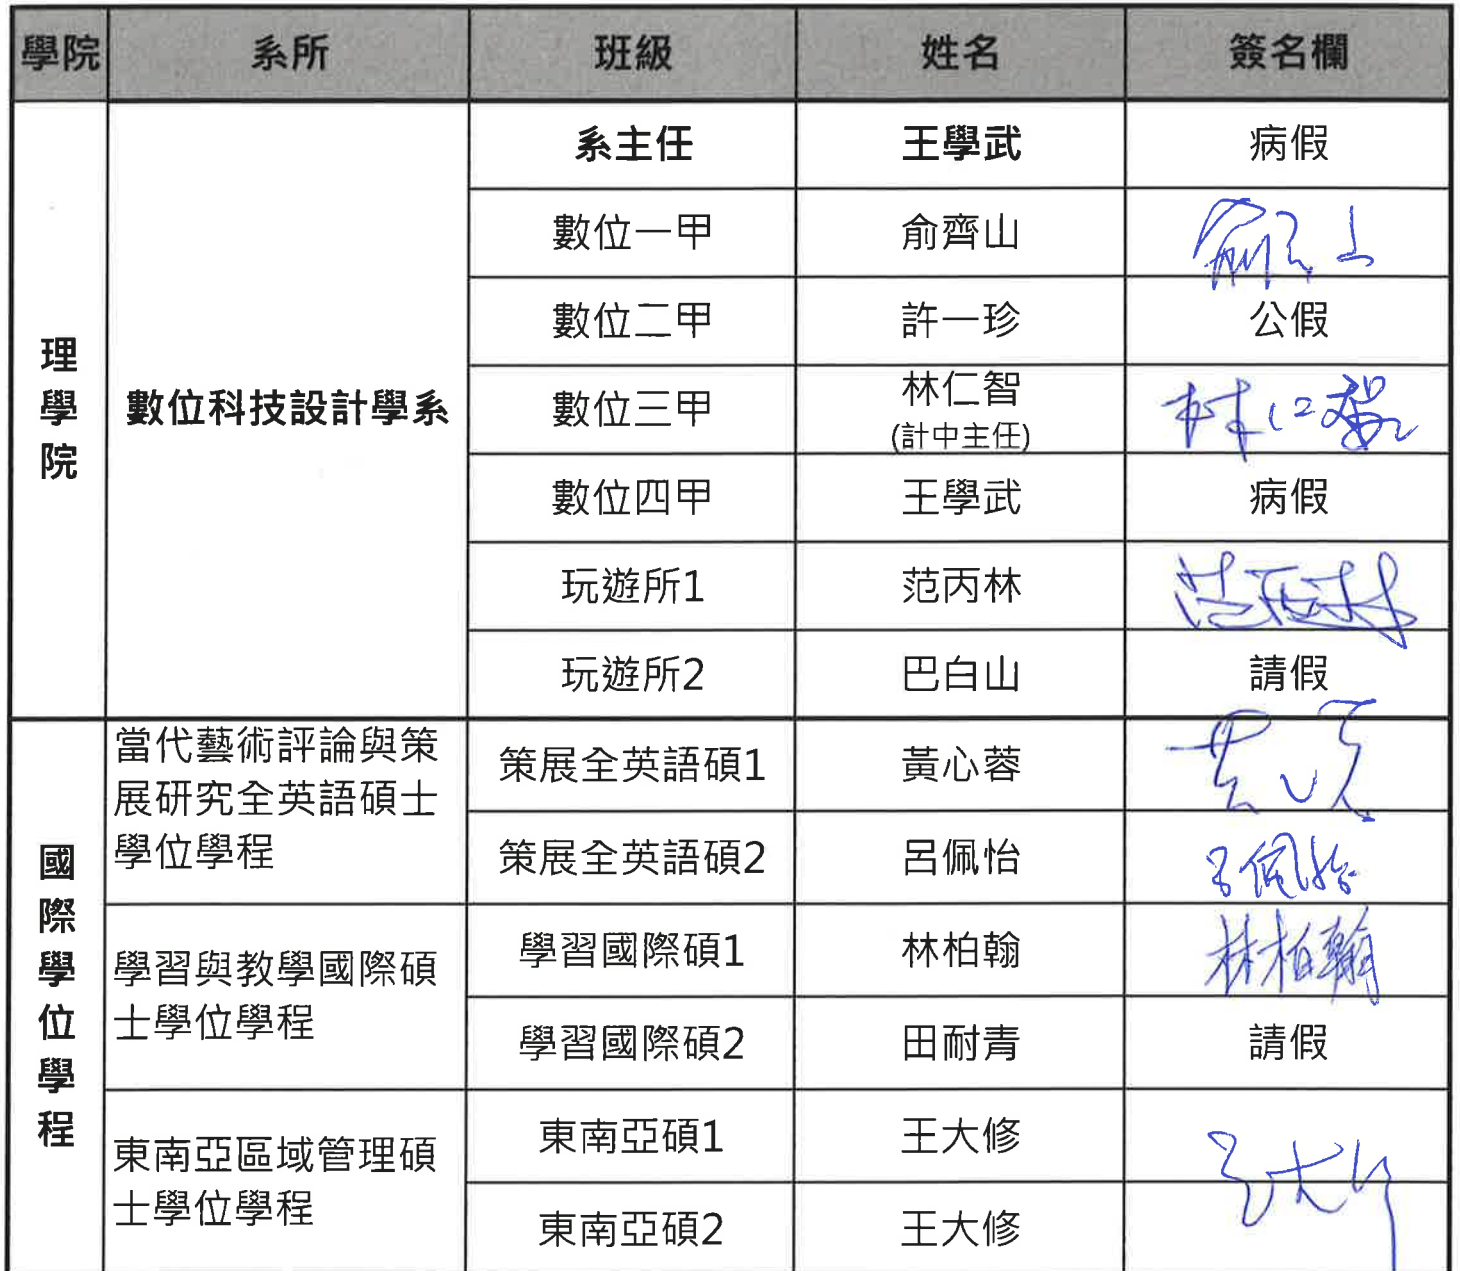 學院 系所 班級 姓名 簽名欄
理學院 數位科技設計學系 系主任 王學武 病假
數位一甲 俞齊山 俞齊山
數位二甲 許一珍 公假
數位三甲 林仁智 林仁智
(計中主任)
數位四甲 王學武 病假
玩遊所1 范丙林 范丙林
玩遊所2 巴白山 請假
國際學位學程
當代藝術評論與策
展研究全英語碩士
學位學程
策展全英語碩1 黃心蓉
策展全英語碩2 呂佩怡 呂佩怡
學習與教學國際碩
士學位學程
學習國際碩1 林柏翰 林柏翰
學習國際碩2 田耐青 請假
東南亞區域管理碩
士學位學程
東南亞碩1 王大修 王大修
東南亞碩2 王大修